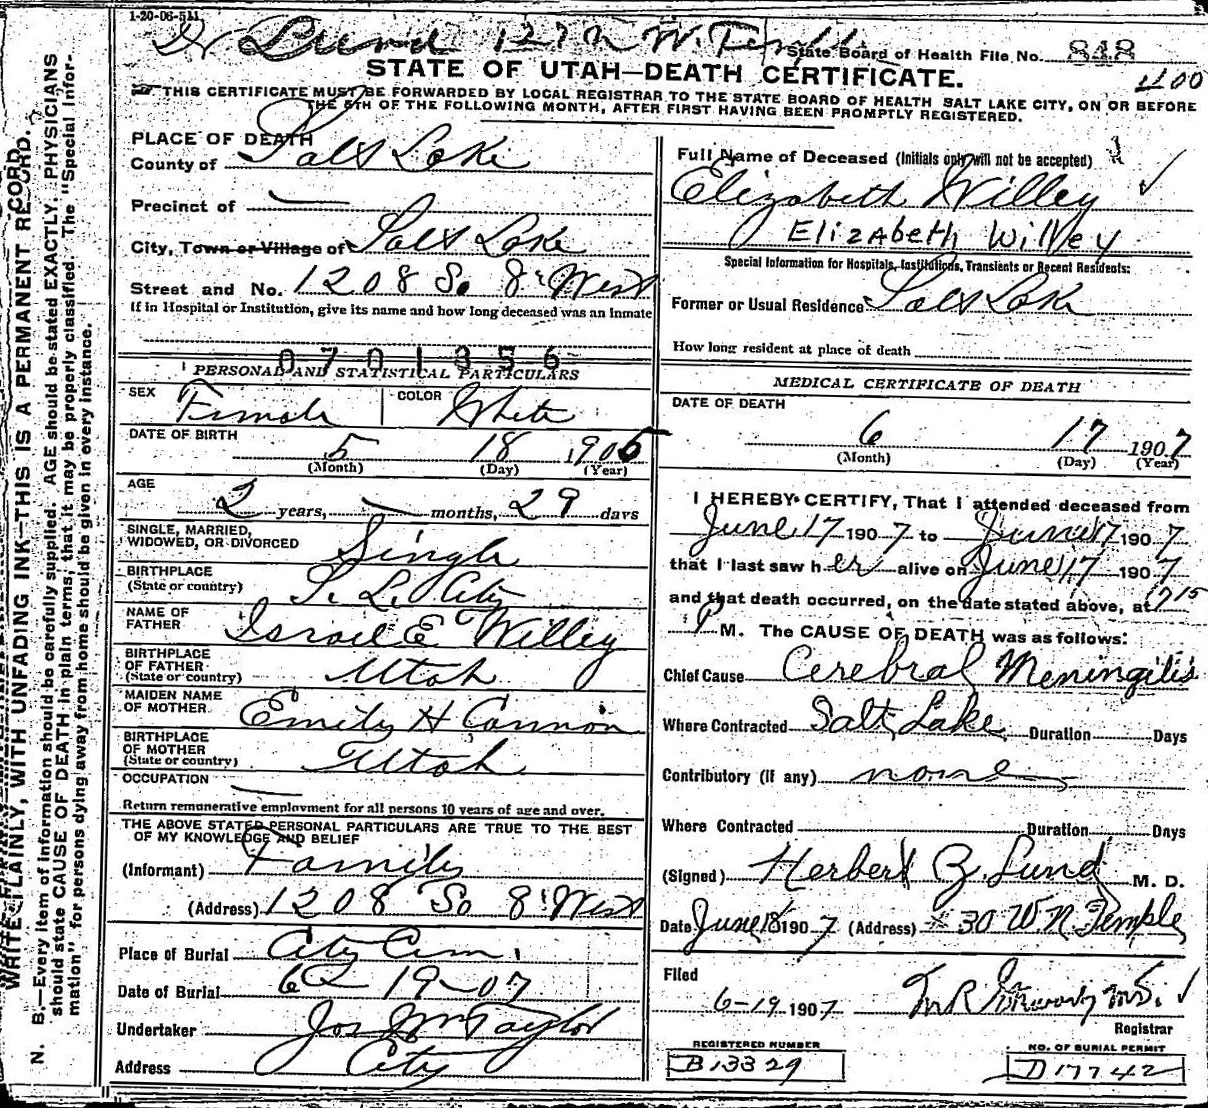 1-20-06-5M
Dr Lund 127 N W. Temple
State Board of Health File No. 848
1100
STATE OF UTAH—DEATH CERTIFICATE.
THIS CERTIFICATE MUST BE FORWARDED BY LOCAL REGISTRAR TO THE STATE BOARD OF HEALTH SALT LAKE CITY, ON OR BEFORE
THE 5TH OF THE FOLLOWING MONTH, AFTER FIRST HAVING BEEN PROMPTLY REGISTERED.
WRITE PLAINLY, WITH UNFADING INK—THIS IS A PERMANENT RECORD.
N. B.—Every item of information should be carefully supplied. AGE should be stated EXACTLY. PHYSICIANS
should state CAUSE OF DEATH in plain terms, that it may be properly classified. The "Special Infor-
mation" for persons dying away from home should be given in every instance.
PLACE OF DEATH
County of Salt Lake
Precinct of —
City, Town or Village of Salt Lake
Street and No. 1208 So 8" West
If in Hospital or Institution, give its name and how long deceased was an inmate
0701356
PERSONAL AND STATISTICAL PARTICULARS
SEX Female COLOR White
DATE OF BIRTH 5 18 1905
(Month) (Day) (Year)
AGE
2 years, — months, 29 days
SINGLE, MARRIED,
WIDOWED, OR DIVORCED Single
BIRTHPLACE
(State or country) S. L. City
NAME OF
FATHER Israel E Willey
BIRTHPLACE
OF FATHER
(State or country) Utah
MAIDEN NAME
OF MOTHER Emily H Cannon
BIRTHPLACE
OF MOTHER
(State or country) Utah
OCCUPATION —
Return remunerative employment for all persons 10 years of age and over.
THE ABOVE STATED PERSONAL PARTICULARS ARE TRUE TO THE BEST
OF MY KNOWLEDGE AND BELIEF
(Informant) Family
(Address) 1208 So 8" West
Place of Burial City Cem.
Date of Burial 6 - 19 - 07
Undertaker Jos Wm Taylor
Address City
Full Name of Deceased (Initials only will not be accepted)
Elizabeth Willey
Elizabeth Willey
Special Information for Hospitals, Institutions, Transients or Recent Residents:
Former or Usual Residence Salt Lake
How long resident at place of death
MEDICAL CERTIFICATE OF DEATH
DATE OF DEATH
6 17 1907
(Month) (Day) (Year)
I HEREBY CERTIFY, That I attended deceased from
June 17 1907 to June 17 1907
that I last saw her alive on June 17 1907
and that death occurred, on the date stated above, at 715
P M. The CAUSE OF DEATH was as follows:
Chief Cause Cerebral Meningitis
Where Contracted Salt Lake Duration Days
Contributory (if any) none
Where Contracted Duration Days
(Signed) Herbert Z. Lund M. D.
Date June 18 1907 (Address) 30 W. N Temple
Filed
6-19 1907
Registrar
REGISTERED NUMBER
B13329
NO. OF BURIAL PERMIT
D17742